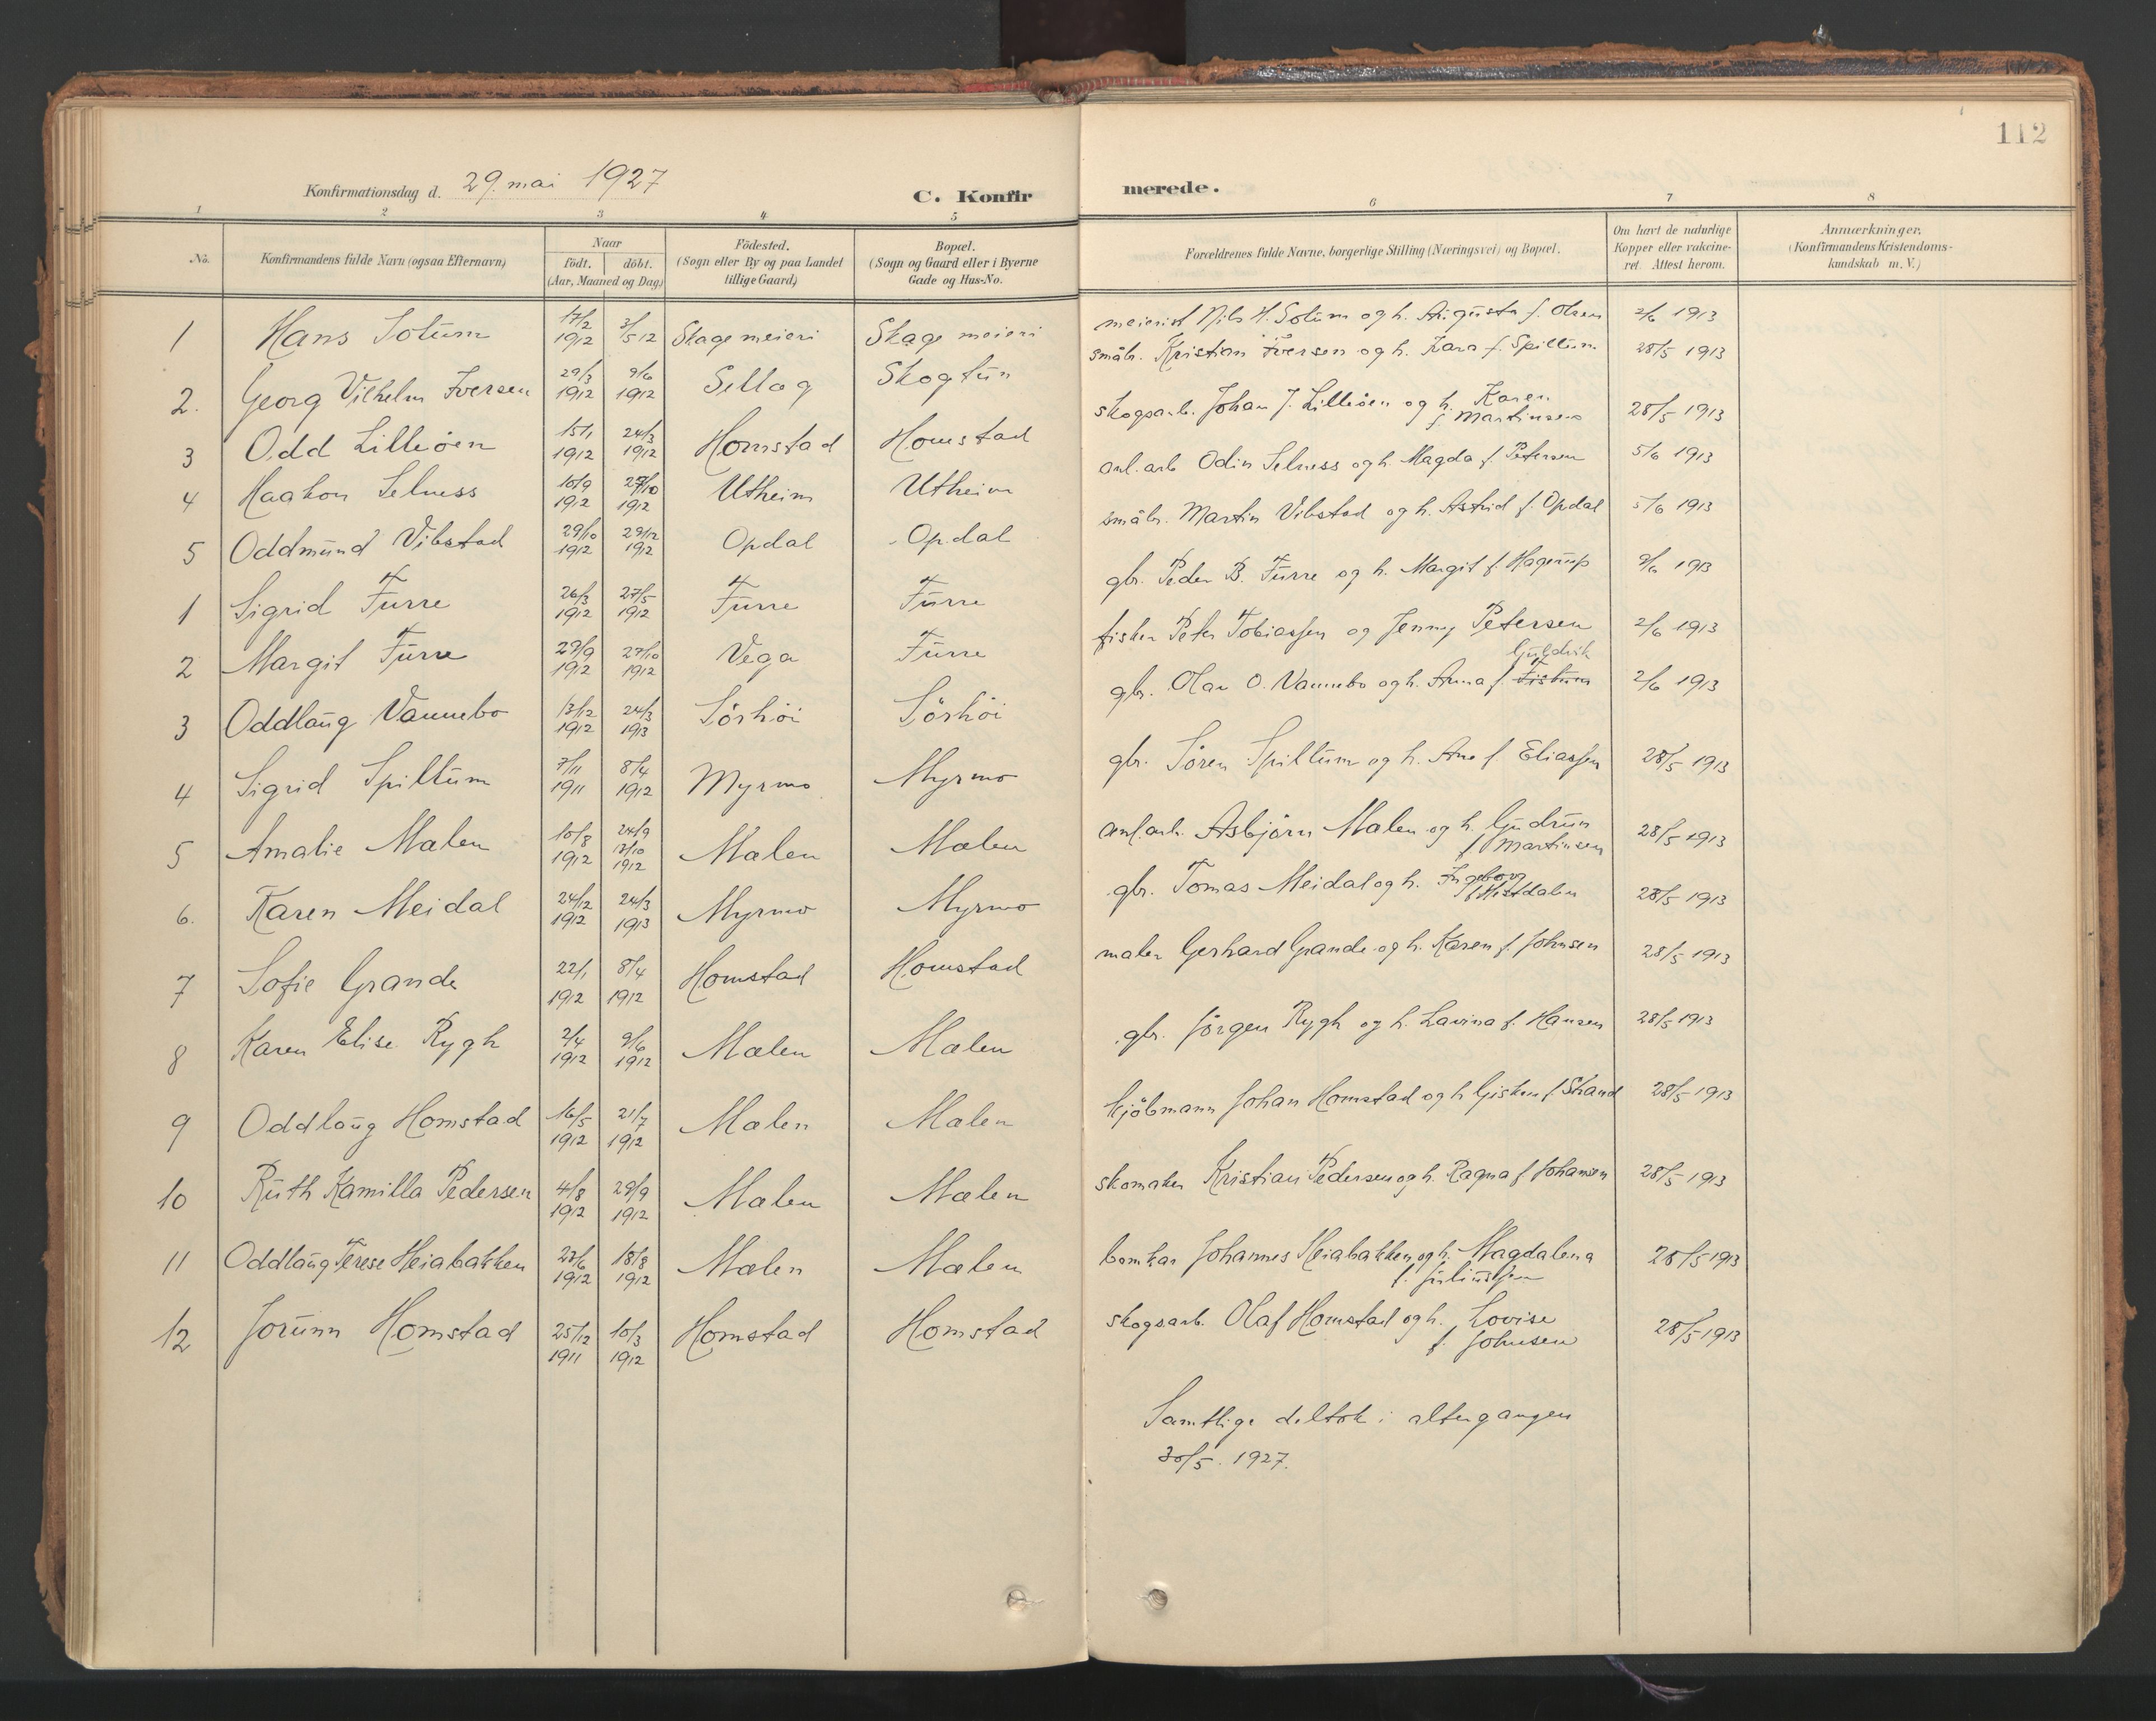 112
Konfirmationsdag d. 29. mai 1927
C. Konfirmerede.
1 2 3 4 5 6 7 8
No. Konfirmandens fulde Navn (ogsaa Efternavn) Naar födt. döbt. (Aar, Maaned og Dag) Födested. (Sogn eller By og paa Landet tillige Gaard) Bopæl. (Sogn og Gaard eller i Byerne Gade og Hus-No. Forældrenes fulde Navne, borgerlige Stilling (Næringsvei) og Bopæl. Om havt de naturlige Kopper eller vakcineret. Attest herom. Anmærkninger, (Konfirmandens Kristendomskundskab m. V.)
1 Hans Solum 17/2 1912 3/5 12 Skage meieri Skage meieri meierist Nils H. Solum og h. Augusta f. Olsen 2/6 1913
2. Georg Vilhelm Iversen 29/3 1912 9/6 1912 Sellæg Skogtun småbr. Kristian Iversen og h. Kara f. Spillum 28/5 1913
3 Odd Lilleöen 15/1 1912 24/3 1912 Homstad Homstad skogsarb. Johan J. Lilleöen og h. Karen f. Martinsen 28/5 1913
4 Haakon Selness 10/9 1912 27/10 1912 Utheim Utheim anl. arb. Odin Selness og h. Magda f. Petersen 5/6 1913
5 Oddmund Vibstad 29/10 1912 29/12 1912 Opdal Opdal småbr. Martin Vibstad og h. Astrid f. Opdal 5/6 1913
1 Sigrid Furre 26/3 1912 27/5 1912 Furre Furre gbr. Peder B. Furre og h. Margit f. Hagerup 2/6 1913
2 Margit Furre 29/9 1912 27/10 1912 Vega Furre fisker Peter Tobiassen og Jenny Petersen 2/6 1913
3 Oddlaug Vannebo 13/12 1912 24/3 1913 Sörhöi Sörhöi gbr. Olav O. Vannebo og h. Anna f. Fiskum Guldvik 2/6 1913
4 Sigrid Spillum 7/11 1911 8/4 1912 Myrmo Myrmo gbr. Sören Spillum og h. Ane f. Eliassen 28/5 1913
5 Amalie Mælen 10/8 1912 24/9 13/10 1912 Mælen Mælen anl. arb. Asbjörn Mælen og h. Gudrun f. Martinsen 28/5 1913
6. Karen Meidal 24/12 1912 24/3 1913 Myrmo Myrmo gbr. Tomas Meidal og h. Ingeborg 28/5 1913
7 Sofie Grande 22/1 1912 8/4 1912 Homstad Homstad maler Gerhard Grande og h. Karen f. Johnsen 28/5 1913
8 Karen Elise Rygh 2/4 1912 9/6 1912 Mælen Mælen gbr. Jörgen Rygh og h. Lavina f. Hansen 28/5 1913
9 Oddlaug Homstad 16/5 1912 21/7 1912 Mælen Mælen kjöbmann Johan Homstad og h. Gisken f. Strand 28/5 1913
10 Ruth Kamilla Pedersen 4/8 1912 29/9 1912 Mælen Mælen skomaker Kristian Pedersen og h. Ragna f. Johansen 28/5 1913
11 Oddlaug Terese Heiabakken 27/6 1912 18/8 1912 Mælen Mælen bomkar Johannes Heiabakken og h. Magdalena f. Juliussen 28/5 1913
12 Jorunn Homstad 25/12 1911 10/3 1912 Homstad Homstad skogsarb. Olaf Homstad og h. Lovise f. Johnsen 28/5 1913
Samtlige deltok i altergangen
30/5. 1927.